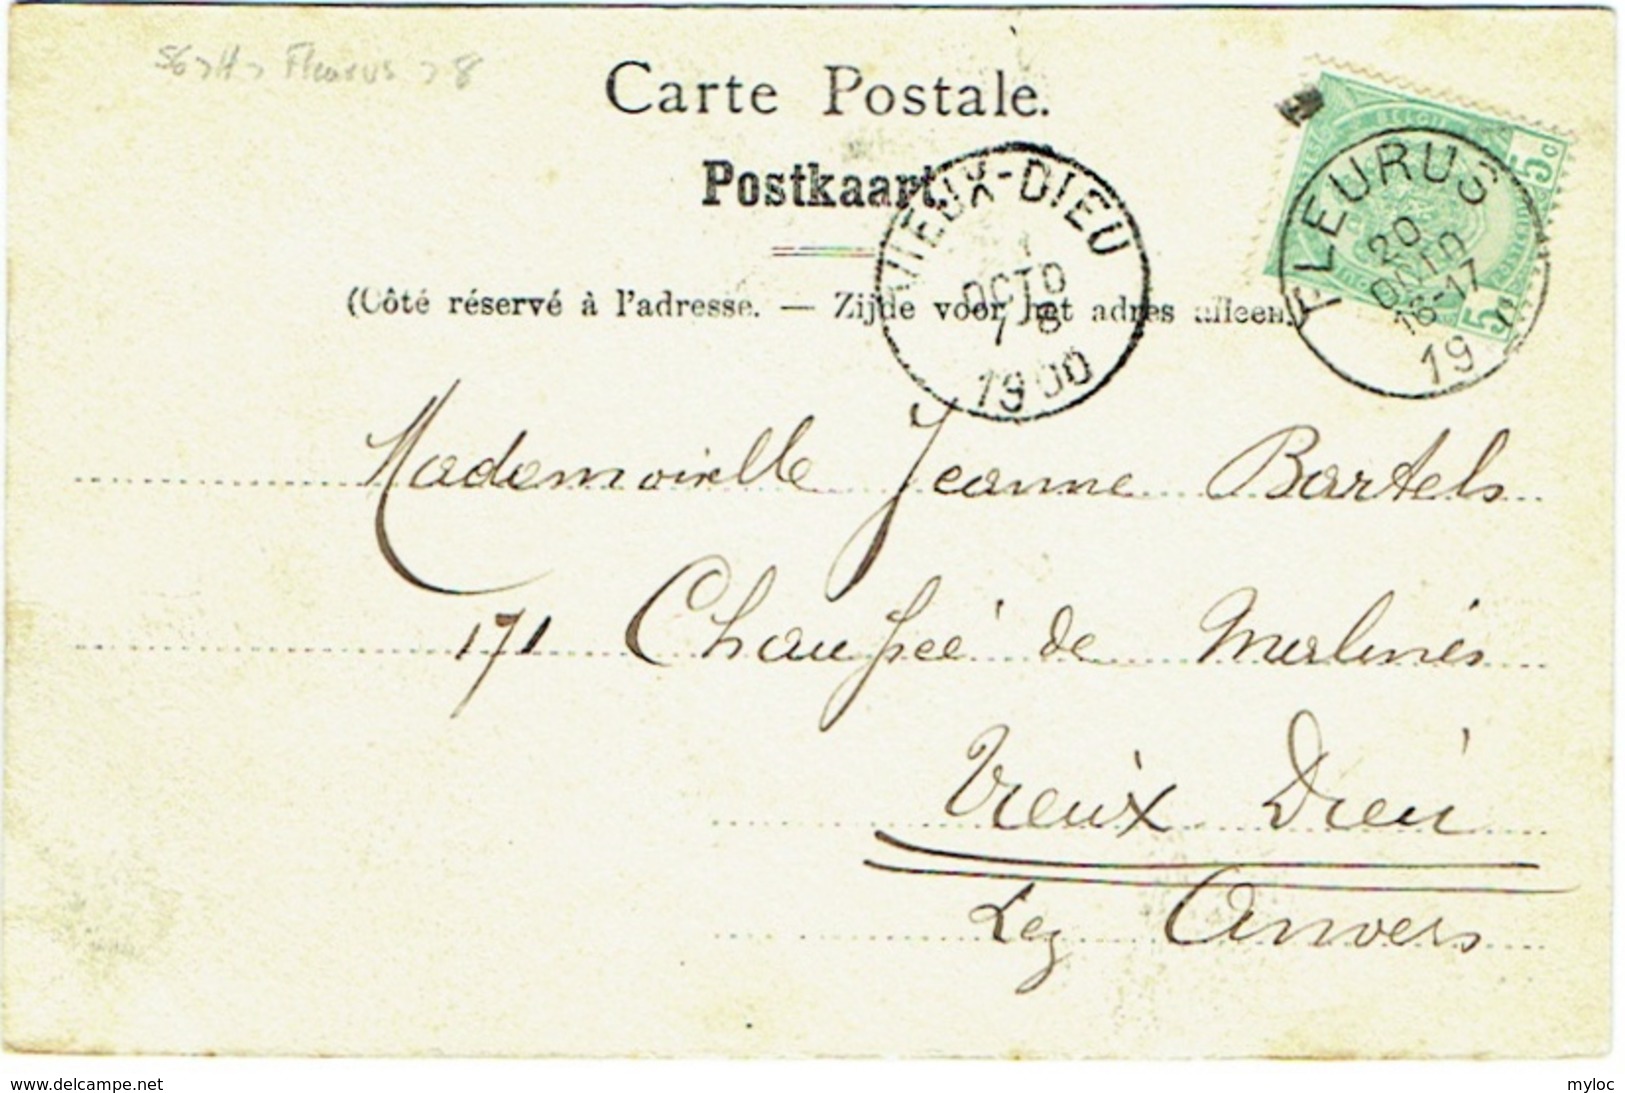 56 > H > Fleurus > 8
Carte Postale.
Postkaart.
(Côté réservé à l'adresse. — Zijde voor het adres alleen.)
VIEUX-DIEU
1
OCTO
7-8
1900
BELGIE
5c
5
FLEURUS
20
16-17
19
Mademoiselle Jeanne Bartels
171 Chaussée de Malines
Vieux Dieu
Lez Anvers
www.delcampe.net
myloc